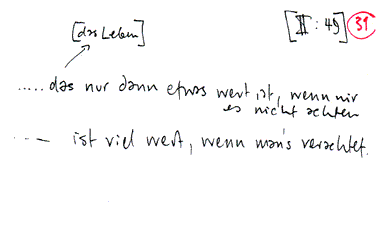 [das Leben]
[II : 49] 31
..... das nur dann etwas wert ist, wenn wir
es nicht achten
... — ist viel wert, wenn man's verachtet.